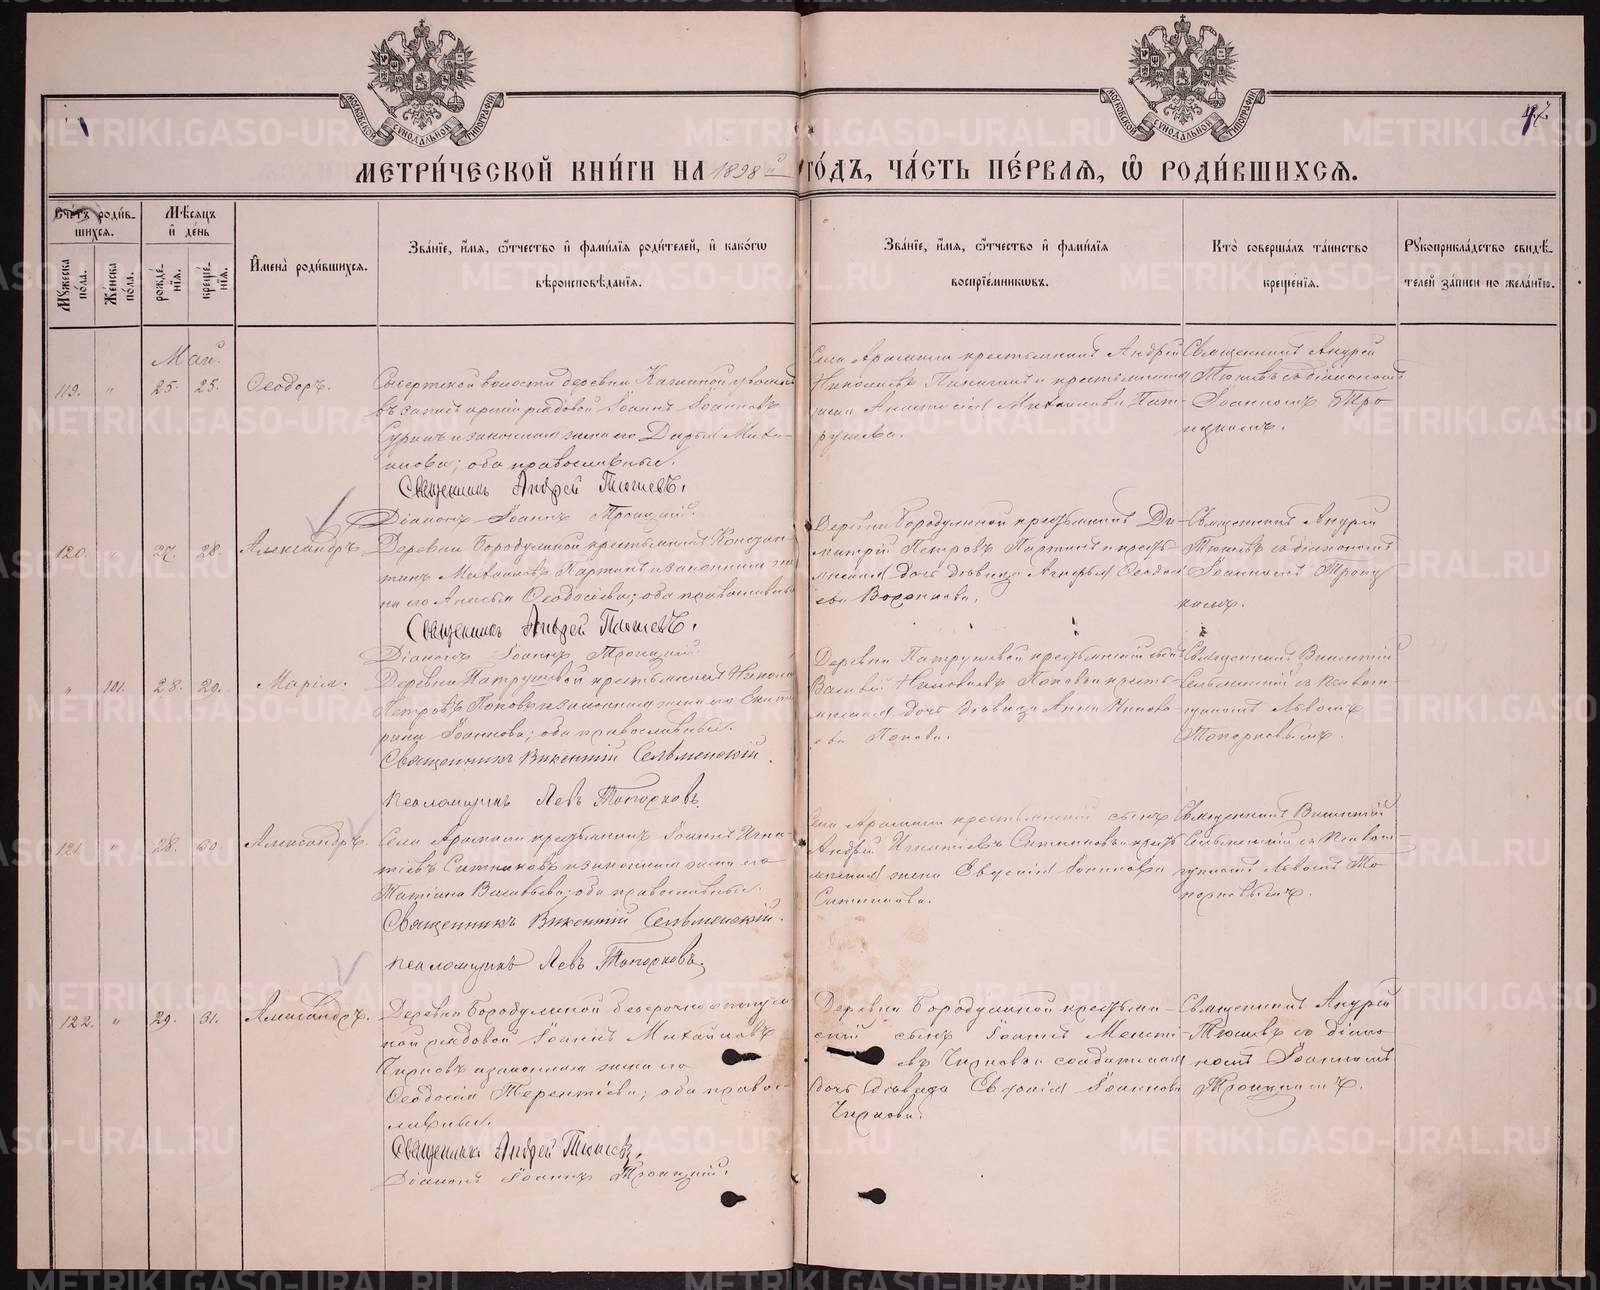 МОСКОВСКОЙ СѴНОДАЛЬНОЙ ТИПОГРАФІИ
МОСКОВСКОЙ СѴНОДАЛЬНОЙ ТИПОГРАФІИ
47
МЕТРИ́ЧЕСКОЙ КНИ́ГИ НА 1898й ГО́ДЪ, ЧА́СТЬ ПЕ́РВАЯ, Ѡ РОДИ́ВШИХСЯ.
Сче́тъ роди́в-
шихся.
Мѣ́сяцъ
и де́нь
Му́жеска
по́ла.
Же́нска
по́ла.
рожде́-
нія.
креще́-
нія.
Имена̀ роди́вшихся.
Зва́ніе, и́мя, ѻ́тчество и фами́лія роди́телей, и како́гѡ
вѣроисповѣ́данія.
Зва́ніе, и́мя, ѻ́тчество и фами́лія
воспріе́мниковъ.
Кто̀ соверша́лъ та́инство
креще́нія.
Рукоприкла́дство свидѣ́-
телей за́писи по жела́нію.
Май.
119. " 25. 25. Ѳеодоръ.
Сысертской волости деревни
въ запасъ арміи рядовой Іоаннъ Іоанновъ
и законная жена его Дарья Миха-
илова; оба православные.
Священникъ Андрей
Діаконъ Іоаннъ Троицкій.
Села Арамили крестьянинъ Андрей
Николаевъ и крестьянская
Анастасія Михаилова Пат-
рушева.
Священникъ Андрей
съ діакономъ
Іоанномъ Тро-
ицкимъ.
120. " 27. 28. Александръ.
Деревни Бородулиной крестьянинъ Констан-
тинъ Михаиловъ Партинъ и законная же-
на его Ѳеодосіева; оба православные
Священникъ Андрей
Діаконъ Іоаннъ Троицкій.
Деревни Бородулиной крестьянинъ Ди-
митрій Петровъ Партинъ и кресть-
янская дочь дѣвица
Священникъ Андрей
съ діакономъ
Іоанномъ Троиц-
кимъ.
" 101. 28. 29. Марія.
Деревни Патрушевой крестьянинъ Никола
Петровъ Поповъ и законная жена его Екате-
рина Іоаннова; оба православные.
Священникъ Викентій Сельменскій.
Псаломщикъ Левъ Топорковъ.
Деревни Патрушевой крестьянскій сынъ
Василій Поповъ и кресть-
янская дочь дѣвица Анна
Попова.
Священникъ Викентій
Сельменскій съ псалом-
щикомъ Львомъ
Топорковымъ.
121. " 28. 30. Александръ.
Села Арамили крестьянинъ Іоаннъ Игна-
тіевъ Ситниковъ и законная жена его
Татіана Васильева; оба православные.
Священникъ Викентій Сельменскій.
Псаломщикъ Левъ Топорковъ.
Села Арамили крестьянскій сынъ
Андрей Игнатіевъ Ситниковъ и кресть-
янская жена Іоаннова
Ситникова.
Священникъ Викентій
Сельменскій съ псалом-
щикомъ Львомъ То-
порковымъ.
122. " 29. 31. Александръ.
Деревни Бородулиной безсрочноотпуск-
ной рядовой Іоаннъ Михайловъ
Чирковъ и законная жена его
Ѳеодосія Терентіева; оба правос-
лавные.
Священникъ Андрей
Діаконъ Іоаннъ Троицкій.
Деревни Бородулиной крестьян-
скій сынъ Іоаннъ
Чирковъ и солдатская
дочь дѣвица Іоаннова
Чиркова.
Священникъ Андрей
съ діако-
номъ Іоанномъ
Троицкимъ.
METRIKI.GASO-URAL.RU